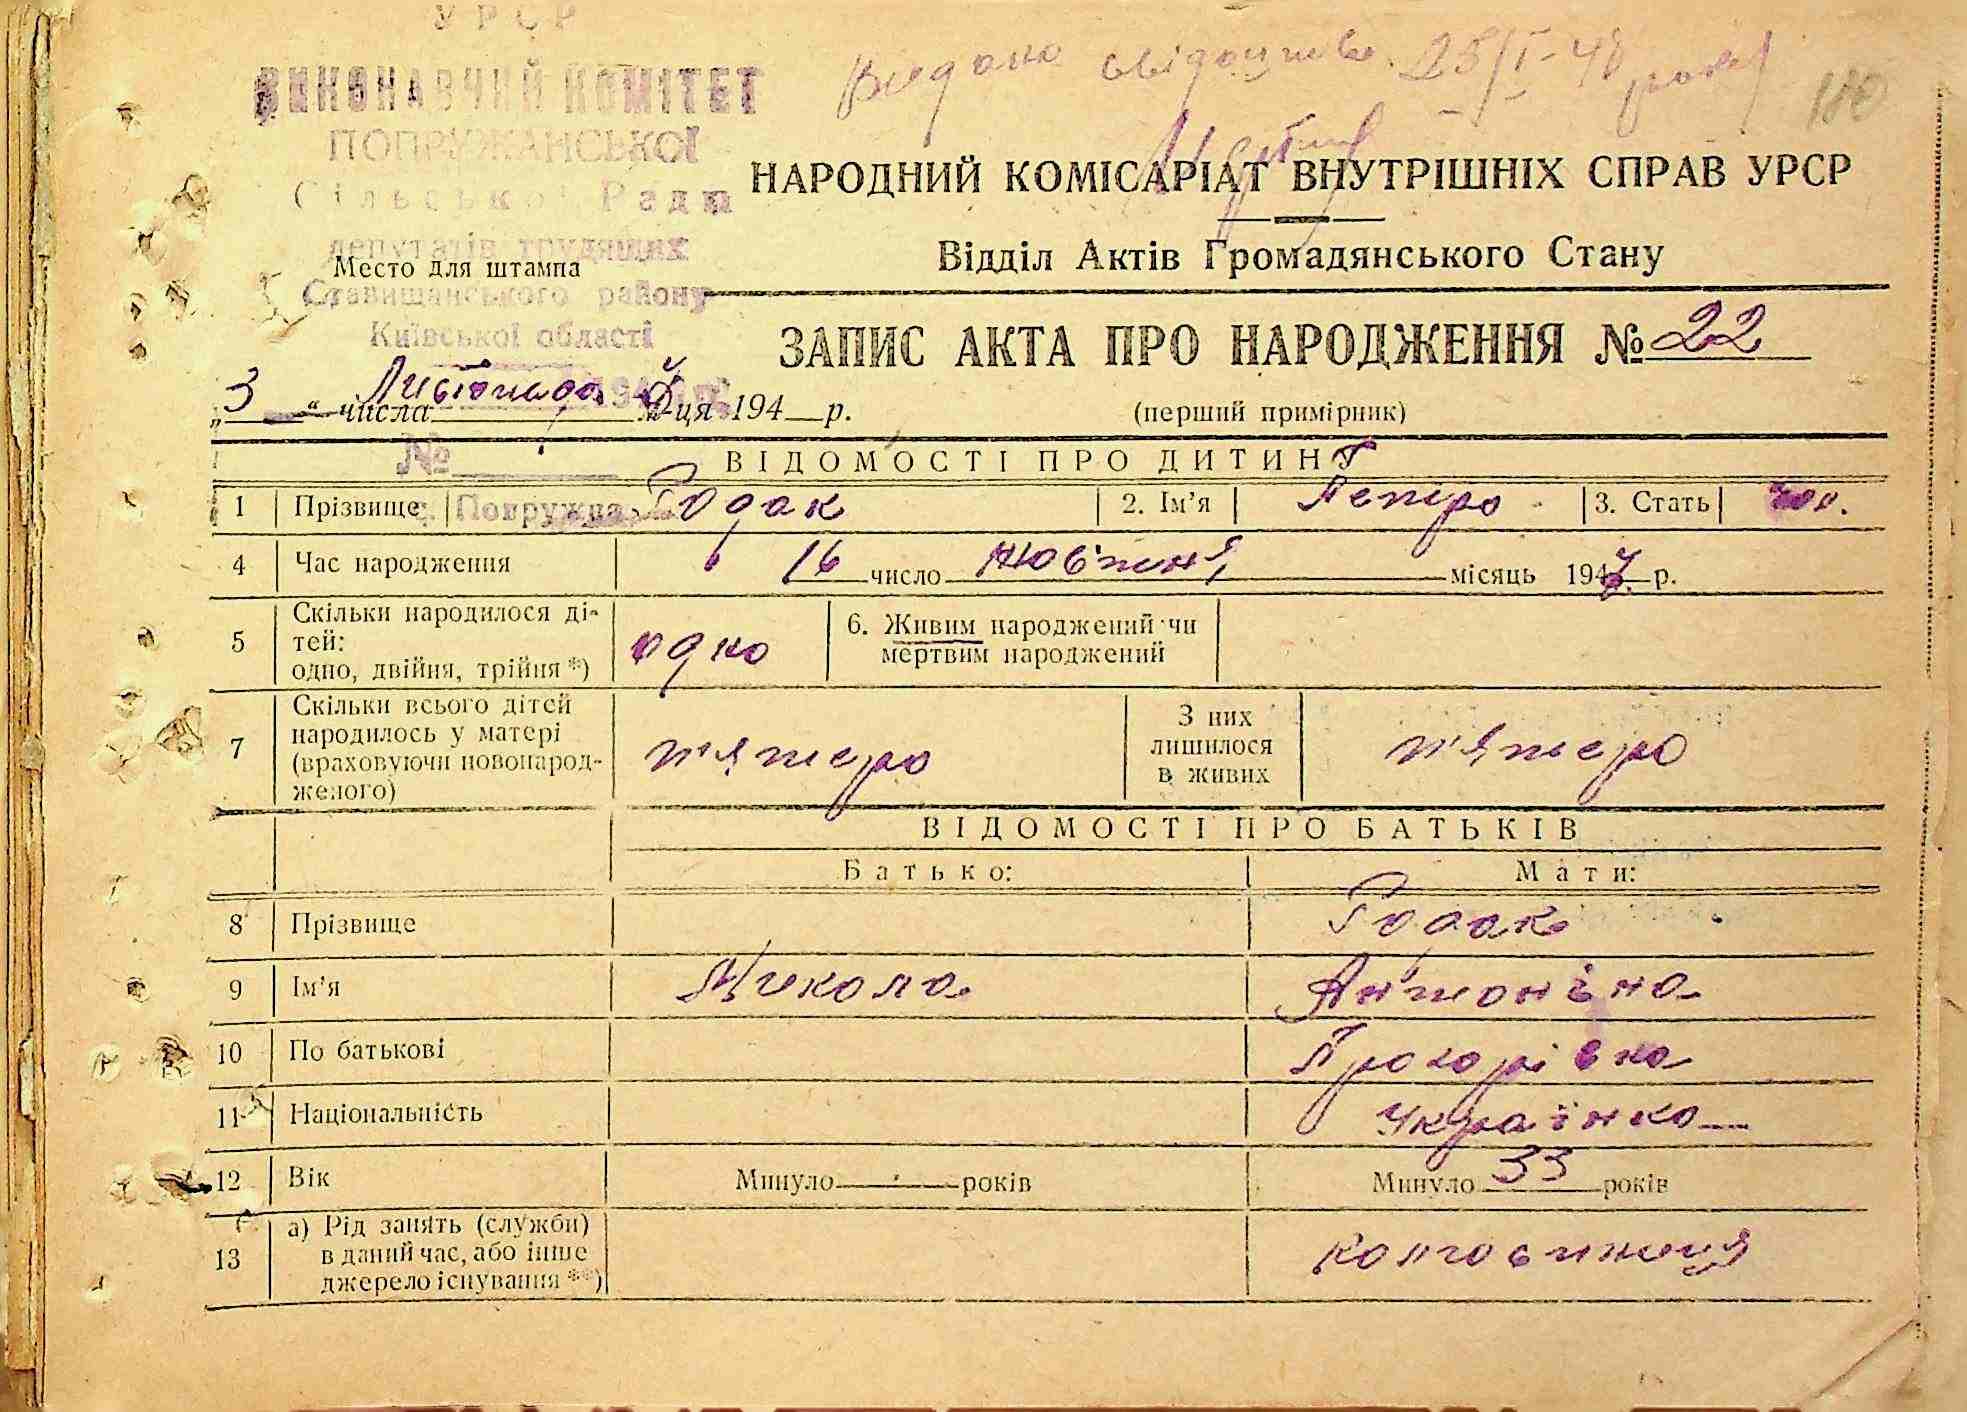 УРСР
ВИКОНАВЧИЙ КОМІТЕТ
ПОПРУЖАНСЬКОЇ
Сільської Ради
депутатів трудящих
Ставищанського району
Київської області
№
с. Попружна
Видано свідоцтво 25/I-48 року
110
НАРОДНИЙ КОМІСАРІАТ ВНУТРІШНІХ СПРАВ УРСР
Відділ Актів Громадянського Стану
Место для штампа
ЗАПИС АКТА ПРО НАРОДЖЕННЯ № 22
„3“ числа Листопада м-ця 194 р.
(перший примірник)
ВІДОМОСТІ ПРО ДИТИНУ
1 Прізвище Годак 2. Ім’я Петро 3. Стать чол.
4 Час народження 16 число жовтня місяць 1947 р.
5 Скільки народилося дітей: одно, двійня, трійня *) одно 6. Живим народжений чи мертвим народжений
7 Скільки всього дітей народилось у матері (враховуючи новонародженого) п'ятеро З них лишилося в живих п'ятеро
ВІДОМОСТІ ПРО БАТЬКІВ
Батько: Мати:
8 Прізвище Годак
9 Ім’я Микола Антоніна
10 По батькові Прохорівна
11 Національність Українка
12 Вік Минуло років Минуло 33 років
13 а) Рід занять (служби) в даний час, або інше джерело існування **) колгоспниця